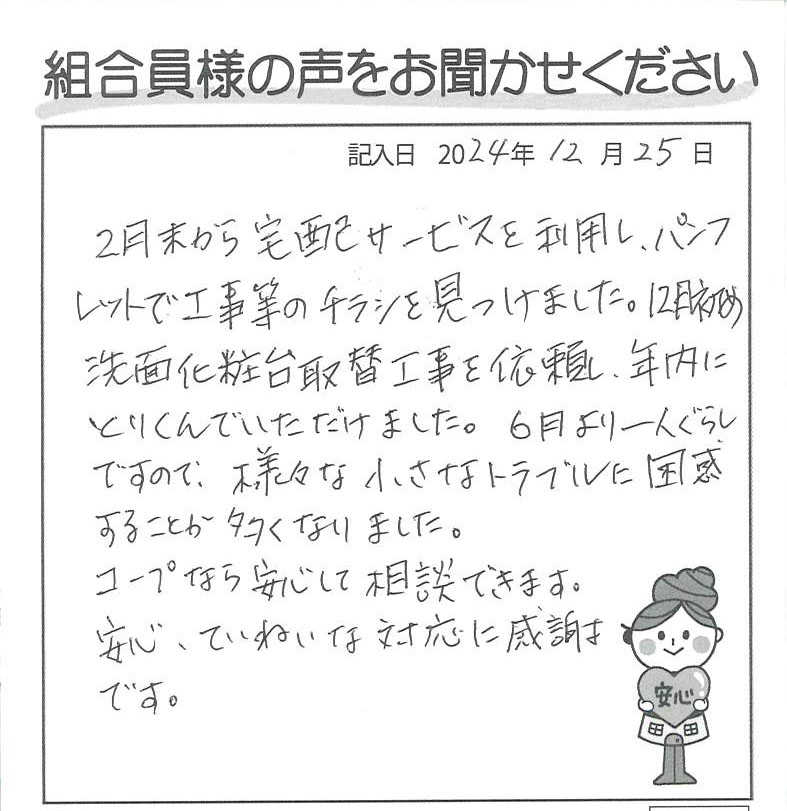 組合員様の声をお聞かせください
記入日 2024年 12月 25日
2月末から宅配サービスを利用し、パンフ
レットで工事等のチラシを見つけました。12月初め
洗面化粧台取替工事を依頼し、年内に
とりくんでいただけました。6月より一人ぐらし
ですので、様々な小さなトラブルに困惑
することが多くなりました。
コープなら安心して相談できます。
安心、ていねいな対応に感謝は
です。
安心